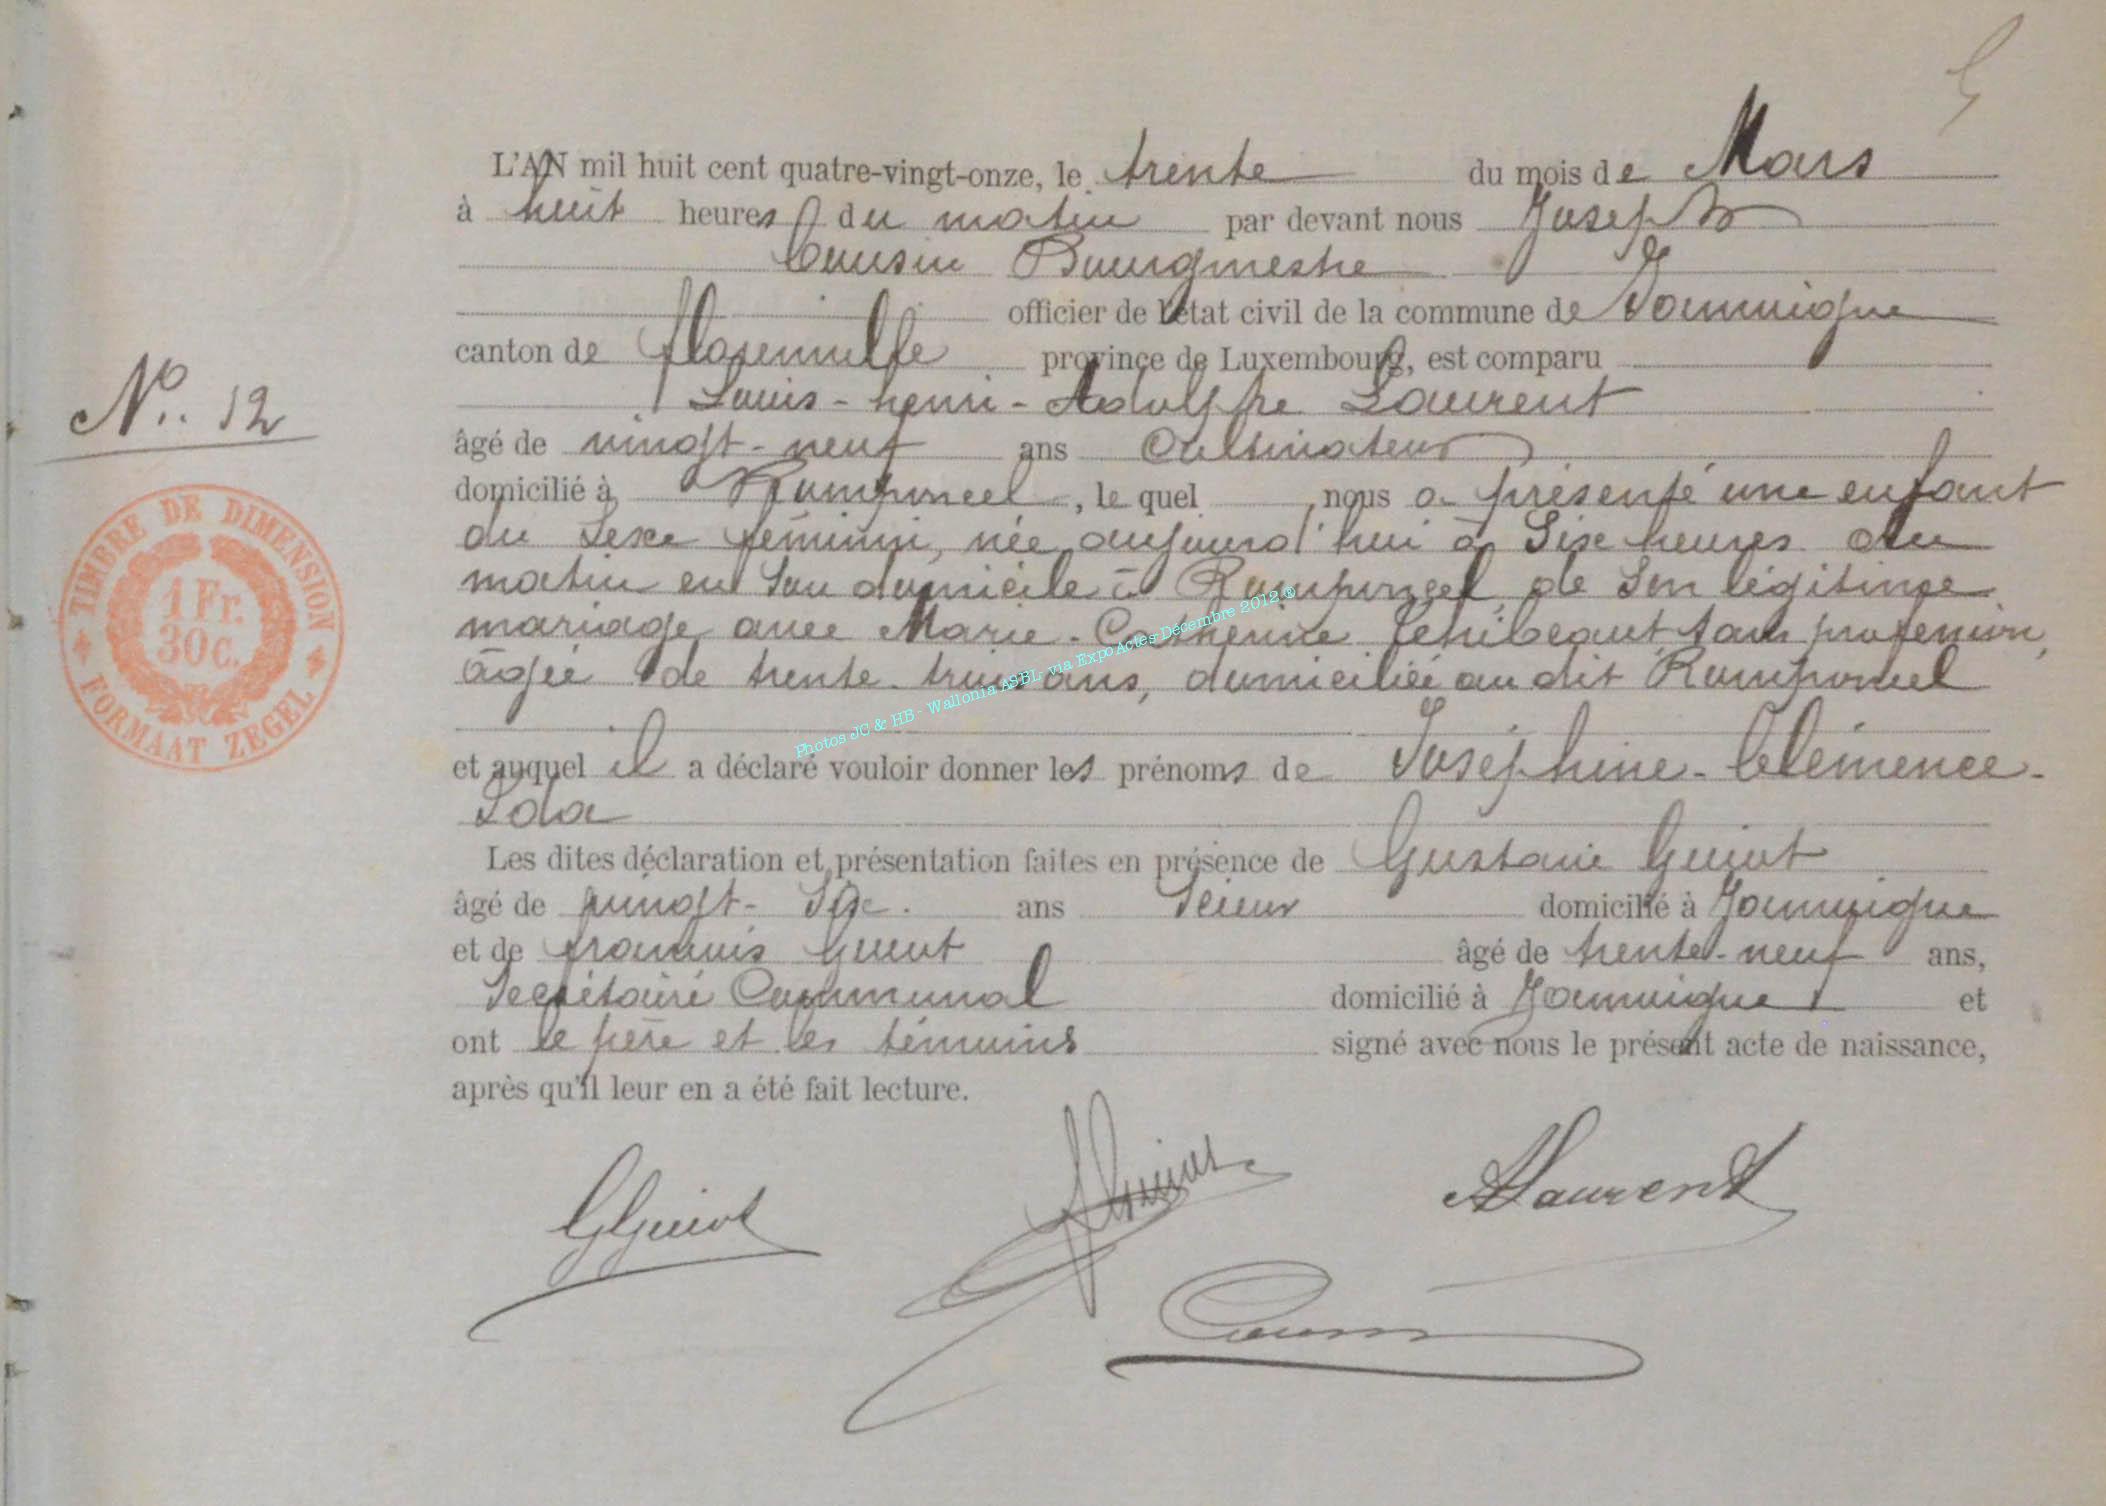 L'AN mil huit cent quatre-vingt-onze, le trente du mois de Mars
à huit heures du matin par devant nous Joseph
Cousin Bourgmestre
officier de l'état civil de la commune de Jamoigne
canton de florenville province de Luxembourg, est comparu
Louis-henri-Adolphe Laurent
N°. 12
âgé de vingt-neuf ans Cultivateur
domicilié à Romponcel, le quel nous a présenté une enfant
du Sexe féminin, née aujourd'hui à Six heures du
matin en Son domicile à Romponcel, de Son légitime
mariage avec Marie-Catherine Sans profession,
âgée de trente-trois ans, domiciliée au dit Romponcel
et auquel il a déclaré vouloir donner les prénoms de Joséphine-Clémence-
Ida
Les dites déclaration et présentation faites en présence de Gustave Guiot
âgé de vingt-Six ans Scieur domicilié à Jamoigne
et de françois Guiot âgé de trente-neuf ans,
Secrétaire Communal domicilié à Jamoigne et
ont le père et les témoins signé avec nous le présent acte de naissance,
après qu'il leur en a été fait lecture.
GGuiot
Guiot
ALaurent
Cousin
TIMBRE DE DIMENSION
1 Fr.
30 c.
FORMAAT ZEGEL
Photos JC & HB - Wallonia ASBL, via ExpoActes Décembre 2012 ®